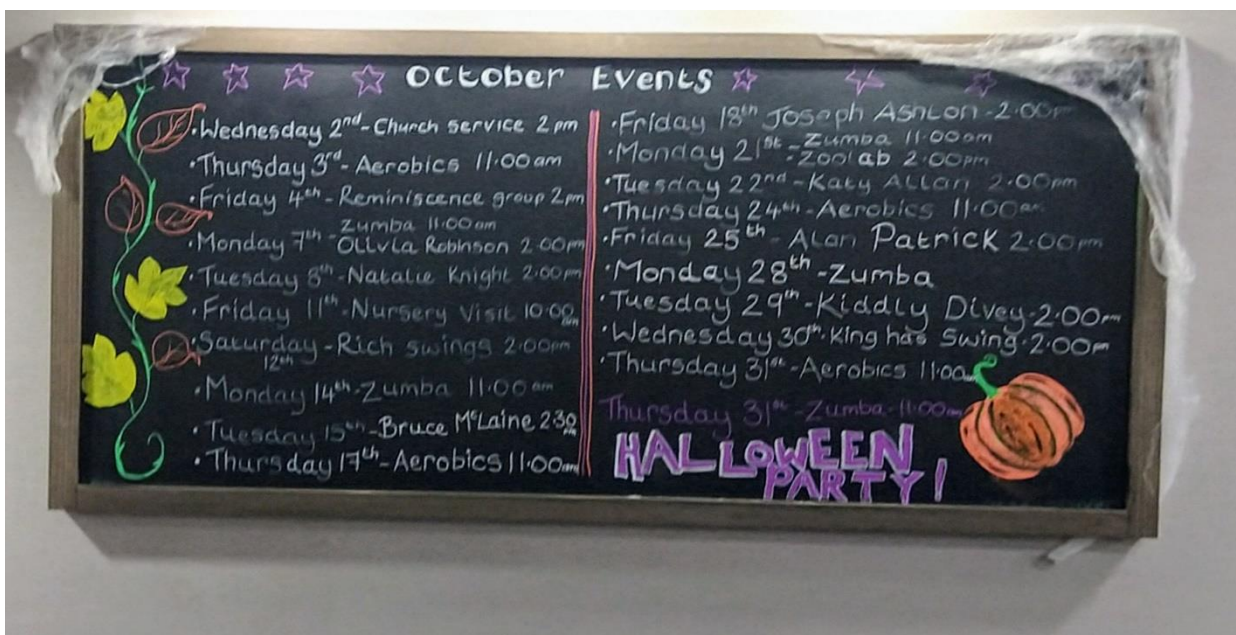 October Events
·Wednesday 2nd-Church service 2pm
·Thursday 3rd-Aerobics 11.00am
·Friday 4th-Reminiscence group 2pm
Zumba 11:00am
·Monday 7th-Olivia Robinson 2:00pm
·Tuesday 8th-Natalie Knight 2:00pm
·Friday 11th-Nursery Visit 10:00am
·Saturday-Rich swings 2:00pm
12th
·Monday 14th-Zumba 11:00am
·Tuesday 15th-Bruce McLaine 2:30pm
·Thursday 17th-Aerobics 11:00am
·Friday 18th Joseph Ashton-2:00p
·Monday 21st-Zumba 11:00am
-Zoolab 2:00pm
·Tuesday 22nd-Katy Allan 2:00pm
·Thursday 24th-Aerobics 11:00am
·Friday 25th-Alan Patrick 2:00pm
·Monday 28th-Zumba
·Tuesday 29th-Kiddly Divey-2:00pm
·Wednesday 30th·King has Swing·2:00pm
·Thursday 31st-Aerobics 11:00am
Thursday 31st-Zumba-11:00am
HALLOWEEN
PARTY!